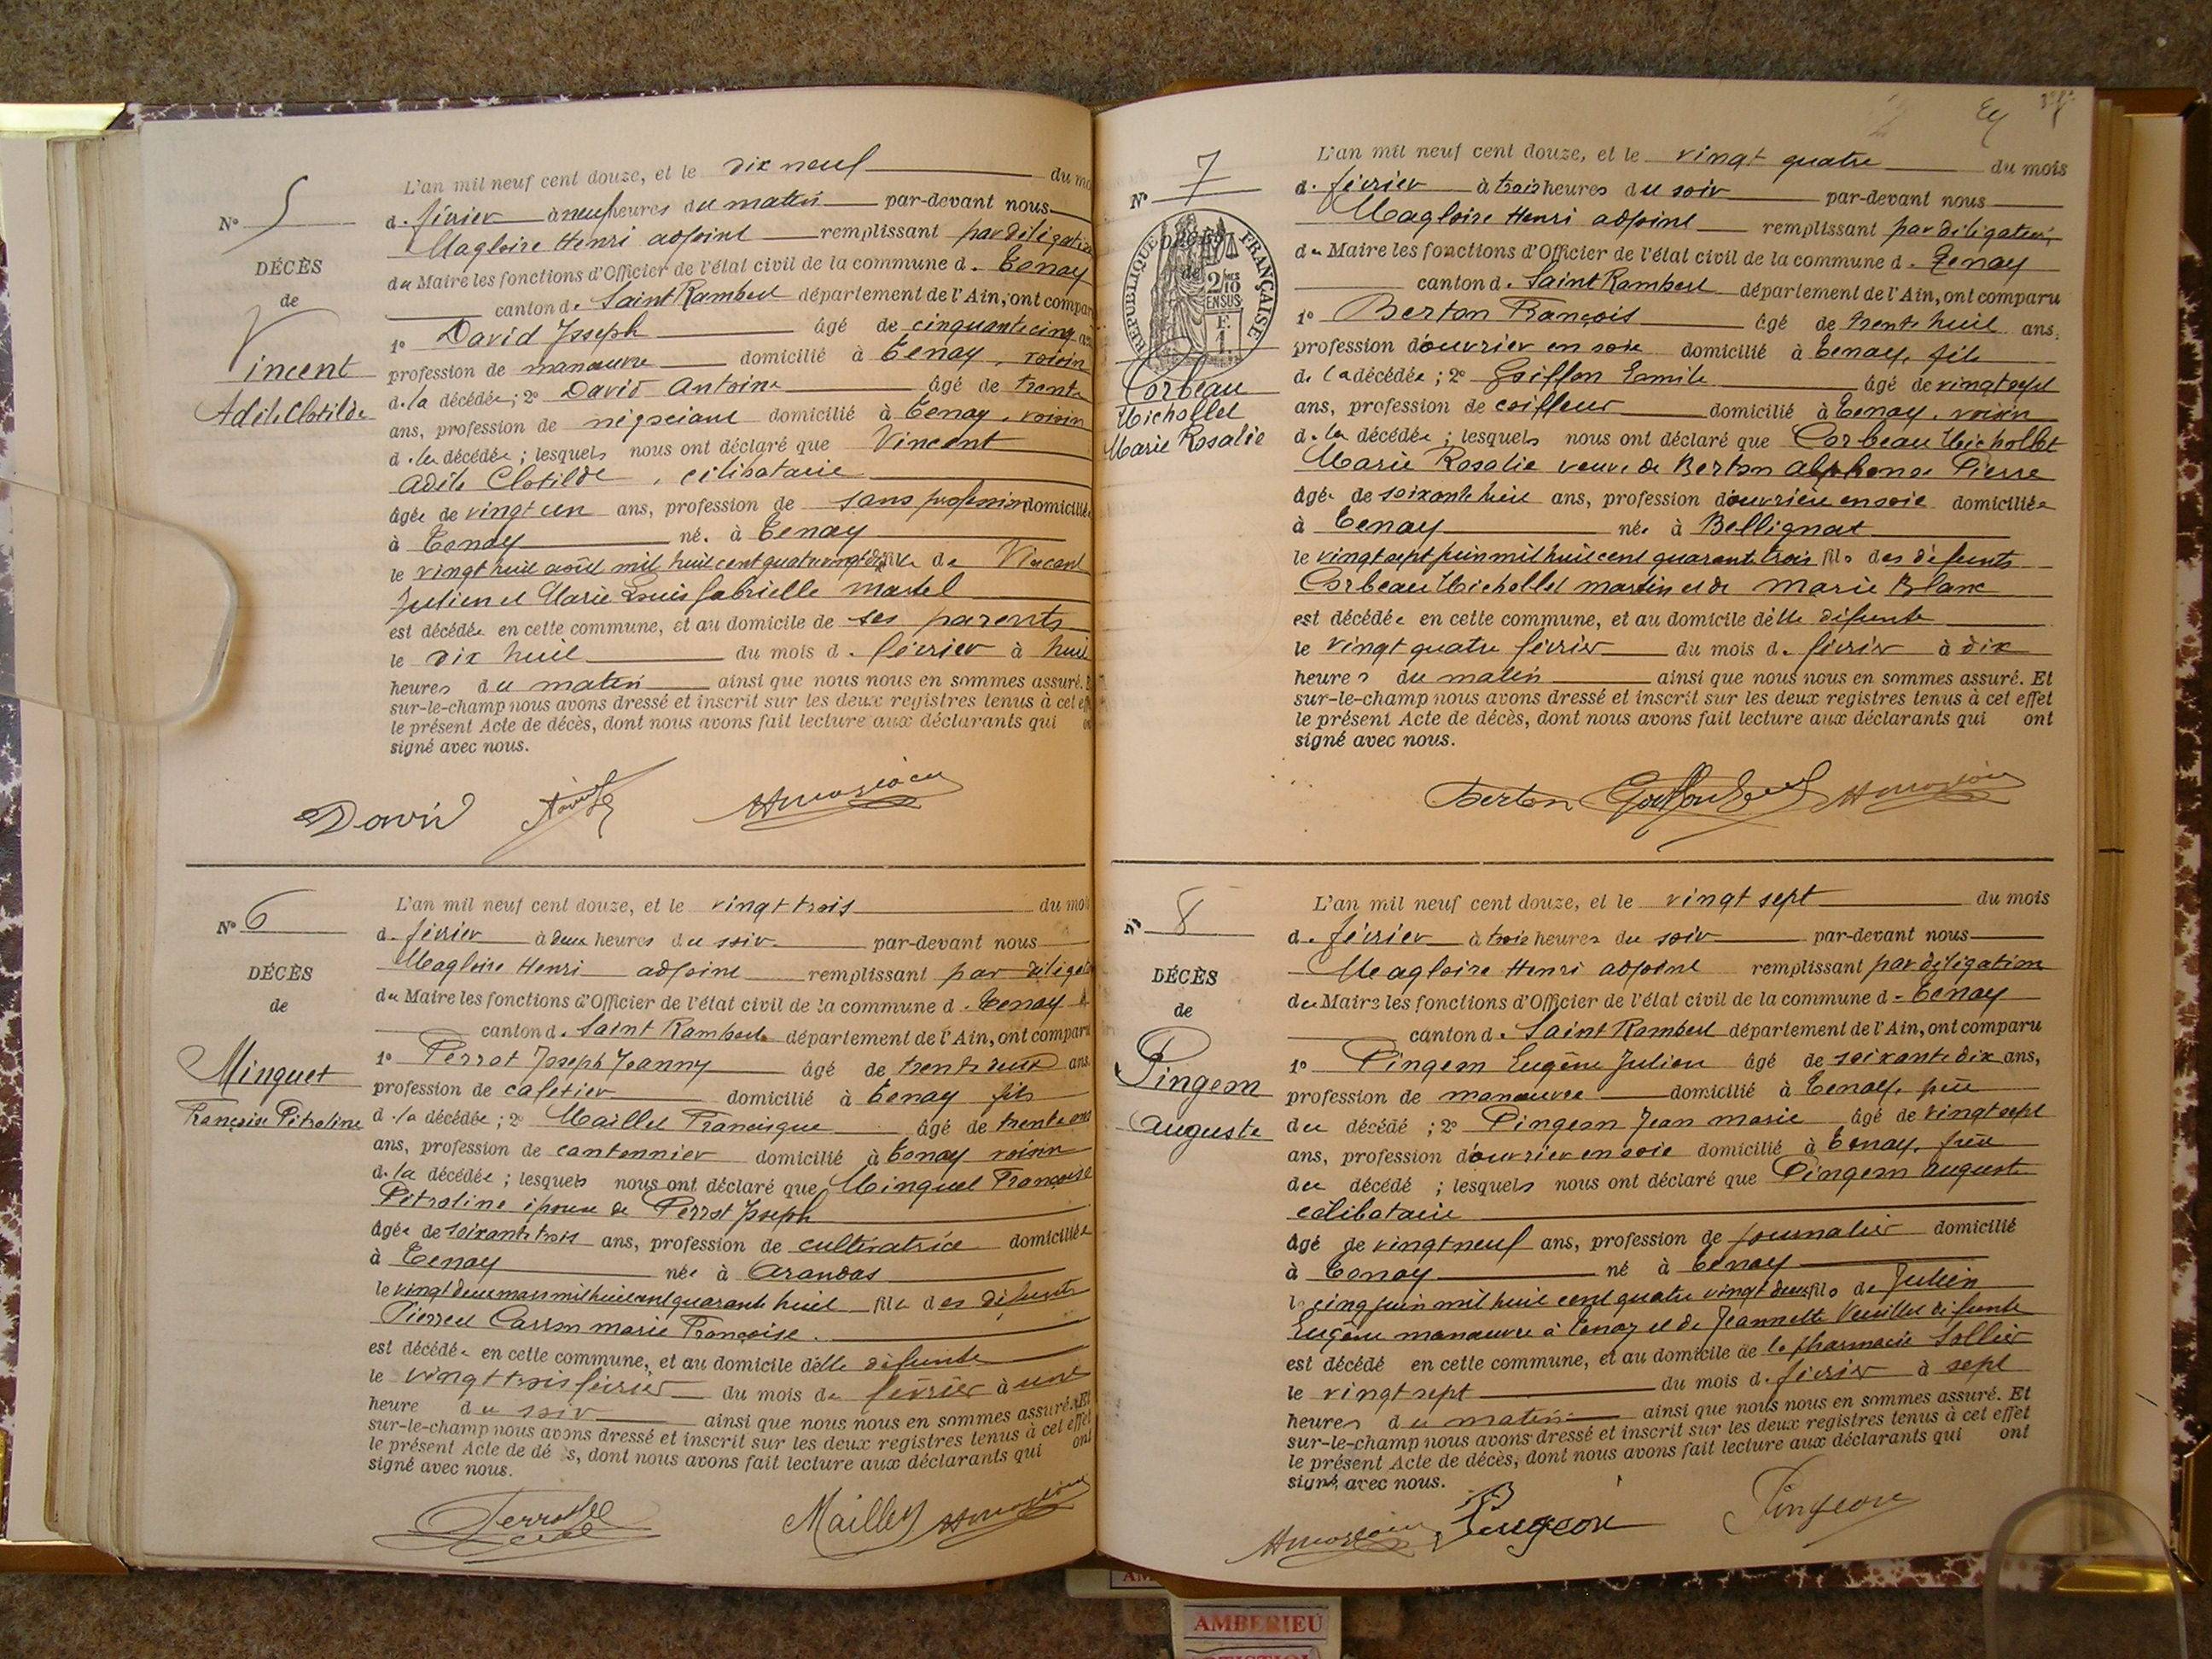 N° 5
DÉCÈS
de
Vincent
Adèle Clotilde
L'an mil neuf cent douze, et le dix neuf du mo
d. février à neuf heures du matin par-devant nous
Magloire Henri adjoint remplissant par délégation
du Maire les fonctions d'Officier de l'état civil de la commune d. Tenay
canton d. Saint Rambert département de l'Ain, ont compar
1° David Joseph âgé de cinquante cinq a
profession de manœuvre domicilié à Tenay, voisin
d. la décédée; 2° David Antoine âgé de trente
ans, profession de négociant domicilié à Tenay, voisin
d. la décédée; lesquels nous ont déclaré que Vincent
Adèle Clotilde, célibataire
âgée de vingt un ans, profession de sans profession domiciliée
à Tenay né. à Tenay
le vingt huit août mil huit cent quatre vingt dix fille de Vincent
Julien et Marie Louis Gabrielle Martel
est décédée en cette commune, et au domicile de ses parents
le dix huit du mois d. février à huit
heures du matin ainsi que nous nous en sommes assuré. E
sur-le-champ nous avons dressé et inscrit sur les deux registres tenus à cet eff
le présent Acte de décès, dont nous avons fait lecture aux déclarants qui on
signé avec nous.
David
N° 6
DÉCÈS
de
Minguet
Françoise Pétroline
L'an mil neuf cent douze, et le vingt trois du moi
d. février à deux heures du soir par-devant nous
Magloire Henri adjoint remplissant par délégati
du Maire les fonctions d'Officier de l'état civil de la commune d. Tenay
canton d. Saint Rambert département de l'Ain, ont comparu
1° Perrot Joseph Jeanny âgé de trente deux ans
profession de cafetier domicilié à Tenay fils
d. la décédée; 2° Maillet Francisque âgé de trente ans
ans, profession de cantonnier domicilié à Tenay voisin
d. la décédée; lesquels nous ont déclaré que Minguet Françoise
Pétroline épouse de Perrot Joseph
âgée de soixante trois ans, profession de cultivatrice domiciliée
à Tenay née à Arandas
le vingt deux mars mil huit cent quarante huit fille des défunts
Pierre et Carron Marie Françoise.
est décédée en cette commune, et au domicile d'elle défunte
le vingt trois février du mois de février à une
heure du soir ainsi que nous nous en sommes assuré. Et
sur-le-champ nous avons dressé et inscrit sur les deux registres tenus à cet effet
le présent Acte de dé s, dont nous avons fait lecture aux déclarants qui ont
signé avec nous.
Perrot Maillet
N° 7
RÉPUBLIQUE FRANÇAISE
2/10 EN SUS
F. 1.
DÉCÈS
de
Corbeau
Michollet
Marie Rosalie
L'an mil neuf cent douze, et le vingt quatre du mois
d. février à trois heures du soir par-devant nous
Magloire Henri adjoint remplissant par délégation
du Maire les fonctions d'Officier de l'état civil de la commune d. Tenay
canton d. Saint Rambert département de l'Ain, ont comparu
1° Berton François âgé de trente huit ans,
profession d'ouvrier en soie domicilié à Tenay, fils
de la décédée; 2° Goiffon Emile âgé de vingt sept
ans, profession de coiffeur domicilié à Tenay, voisin
d. la décédée; lesquels nous ont déclaré que Corbeau Michollet
Marie Rosalie veuve de Berton Alphonse Pierre
âgée de soixante huit ans, profession d'ouvrière en soie domiciliée
à Tenay née à Bellignat
le vingt sept juin mil huit cent quarante trois fils des défunts
Corbeau Michollet Martin et de Marie Blanc
est décédée en cette commune, et au domicile d'elle défunte
le vingt quatre février du mois d. février à dix
heures du matin ainsi que nous nous en sommes assuré. Et
sur-le-champ nous avons dressé et inscrit sur les deux registres tenus à cet effet
le présent Acte de décès, dont nous avons fait lecture aux déclarants qui ont
signé avec nous.
Berton
N° 8
DÉCÈS
de
Pingeon
Auguste
L'an mil neuf cent douze, et le vingt sept du mois
d. février à trois heures du soir par-devant nous
Magloire Henri adjoint remplissant par délégation
du Maire les fonctions d'Officier de l'état civil de la commune d. Tenay
canton d. Saint Rambert département de l'Ain, ont comparu
1° Pingeon Eugène Julien âgé de soixante dix ans,
profession de manœuvre domicilié à Tenay, père
du décédé; 2° Pingeon Jean Marie âgé de vingt sept
ans, profession d'ouvrier en soie domicilié à Tenay, frère
du décédé; lesquels nous ont déclaré que Pingeon Auguste
célibataire
âgé de vingt neuf ans, profession de journalier domicilié
à Tenay né à Tenay
le cinq juin mil huit cent quatre vingt deux fils de Julien
Eugène manœuvre à Tenay et de Jeannette Veuillet défunte
est décédé en cette commune, et au domicile de la pharmacie Sollier
le vingt sept du mois d. février à sept
heures du matin ainsi que nous nous en sommes assuré. Et
sur-le-champ nous avons dressé et inscrit sur les deux registres tenus à cet effet
le présent Acte de décès, dont nous avons fait lecture aux déclarants qui ont
signé avec nous.
Pingeon Pingeon
AMBERIEU